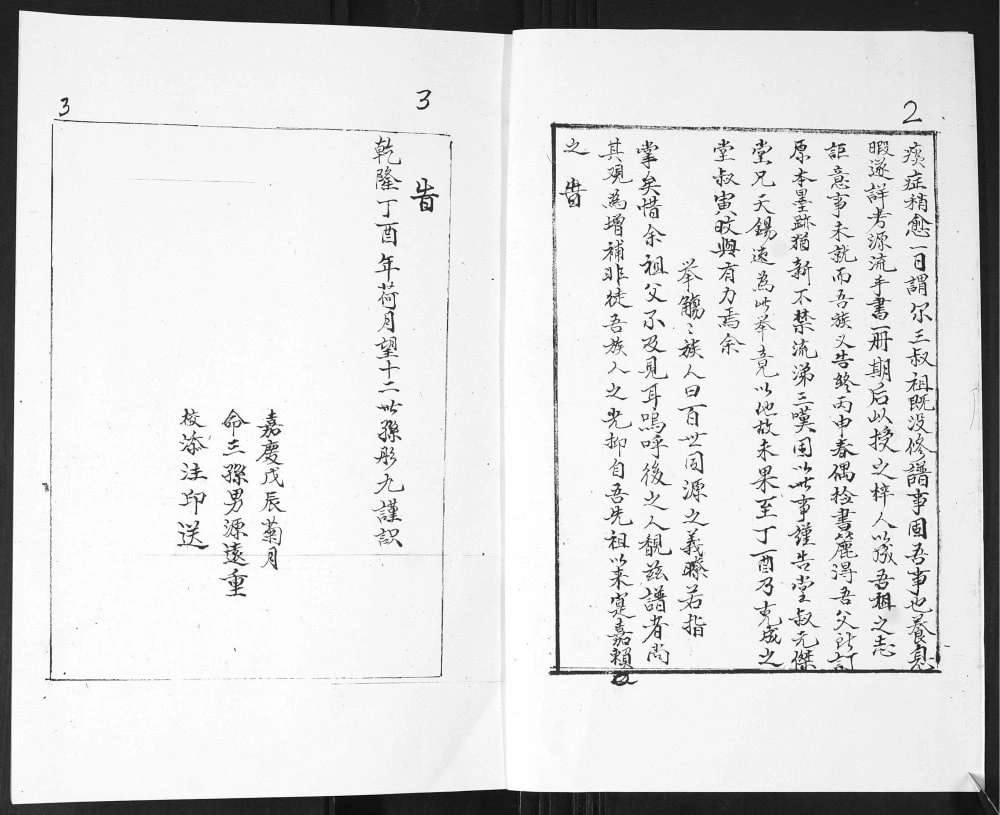 2
痰症稍愈一日謂尔三叔祖既没修譜事固吾事也養息
暇遂詳考源流手書一册期后以授之梓人以成吾祖之志
詎意事未就而吾族又告終丙申春偶檢書簏得吾父所訂
原本墨跡猶新不禁流涕三嘆因以此事謹告堂叔元傑
堂兄天錫遠為此举竟以他故未果至丁酉乃克成之
堂叔寅旼與有力焉余
举觴〻族人曰百世同源之義瞭若指
掌矣惜余祖父不及見耳嗚呼後之人覩茲譜者尚
其观為增補非徒吾族人之光抑自吾先祖以来寔嘉賴
之 旹
3
旹
乾隆丁酉年荷月望十二世孫彤九謹識
嘉慶戊辰菊月
命三孫男源遠重
校添注印送
3